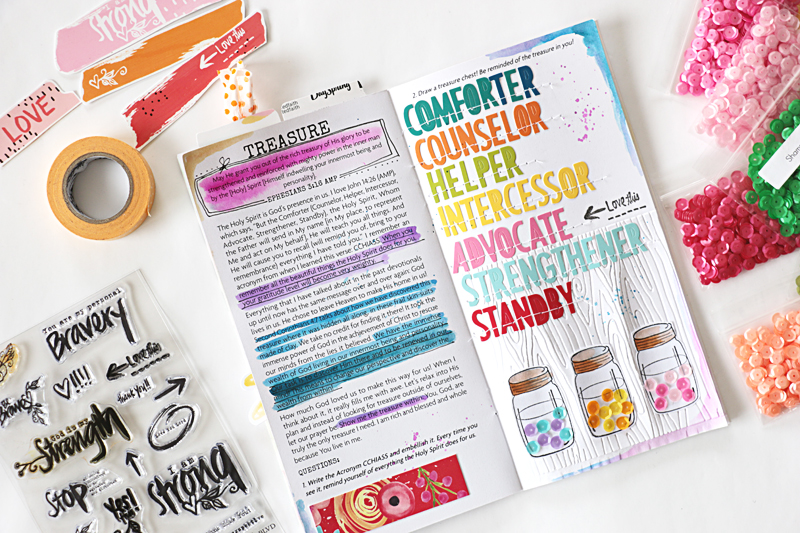 strong
Love this
LOVE
DaySpring
TREASURE
May He grant you out of the rich treasury of His glory to be
strengthened and reinforced with mighty power in the inner man
by the [Holy] Spirit [Himself indwelling your innermost being and
personality].
EPHESIANS 3:16 AMP
The Holy Spirit is God's presence in us. I love John 14:26 (AMP),
which says, "But the Comforter [Counselor, Helper, Intercessor,
Advocate, Strengthener, Standby], the Holy Spirit, Whom
the Father will send in My name [in My place, to represent
Me and act on My behalf], He will teach you all things. And
He will cause you to recall (will remind you of, bring to your
remembrance) everything I have told you." I remember an
acronym from when I learned this verse: CCHIASS. When you
remember all the beautiful things the Holy Spirit does for you,
your gratitude level will become very weighty.
Everything that I have talked about in the past devotionals
up until now has the same message over and over again: God
lives in us. He chose to leave Heaven to make His home in us!
Second Corinthians 4:7 talks about how we have discovered this
treasure where it was hidden all along, in these frail skin suits
made of clay. We take no credit for finding it there! It took the
immense power of God in the achievement of Christ to rescue
our minds from the lies it believed. We have the immense
wealth of God living in our innermost being and personality.
How much God loved us to make this way for us! When I
think about it, it really fills me with awe. Let's relax into His
plan and instead of looking for treasure outside of ourselves,
let our prayer be: Show me the treasure within. You, God, are
truly the only treasure I need. I am rich and blessed and whole
because You live in me.
QUESTIONS:
1. Write the Acronym CCHIASS and embellish it. Every time you
see it, remind yourself of everything the Holy Spirit does for us.
2. Draw a treasure chest! Be reminded of the treasure in you!
COMFORTER
COUNSELOR
HELPER
INTERCESSOR
Love this
ADVOCATE
STRENGTHENER
STANDBY
You are my personal
Bravery
Love this
thank you!!
God is my
Strength
I am
strong
STOP
Yes!
BLVD
Shan